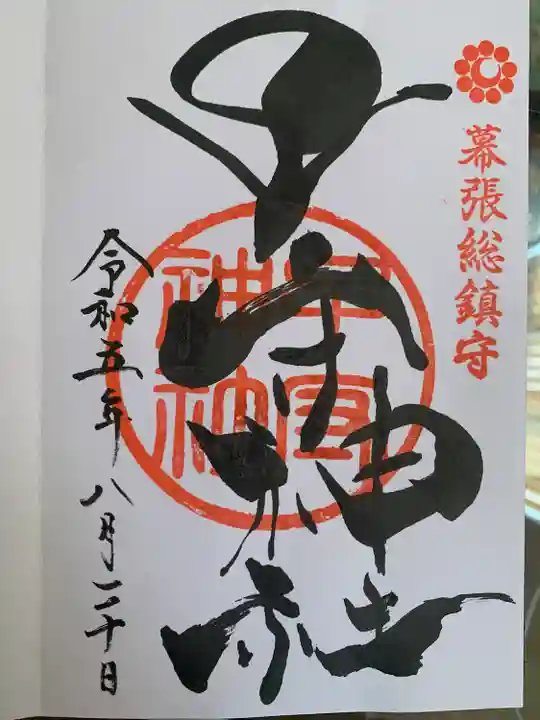 幕張総鎮守
子守神社
子守
神社
令和五年八月二十日